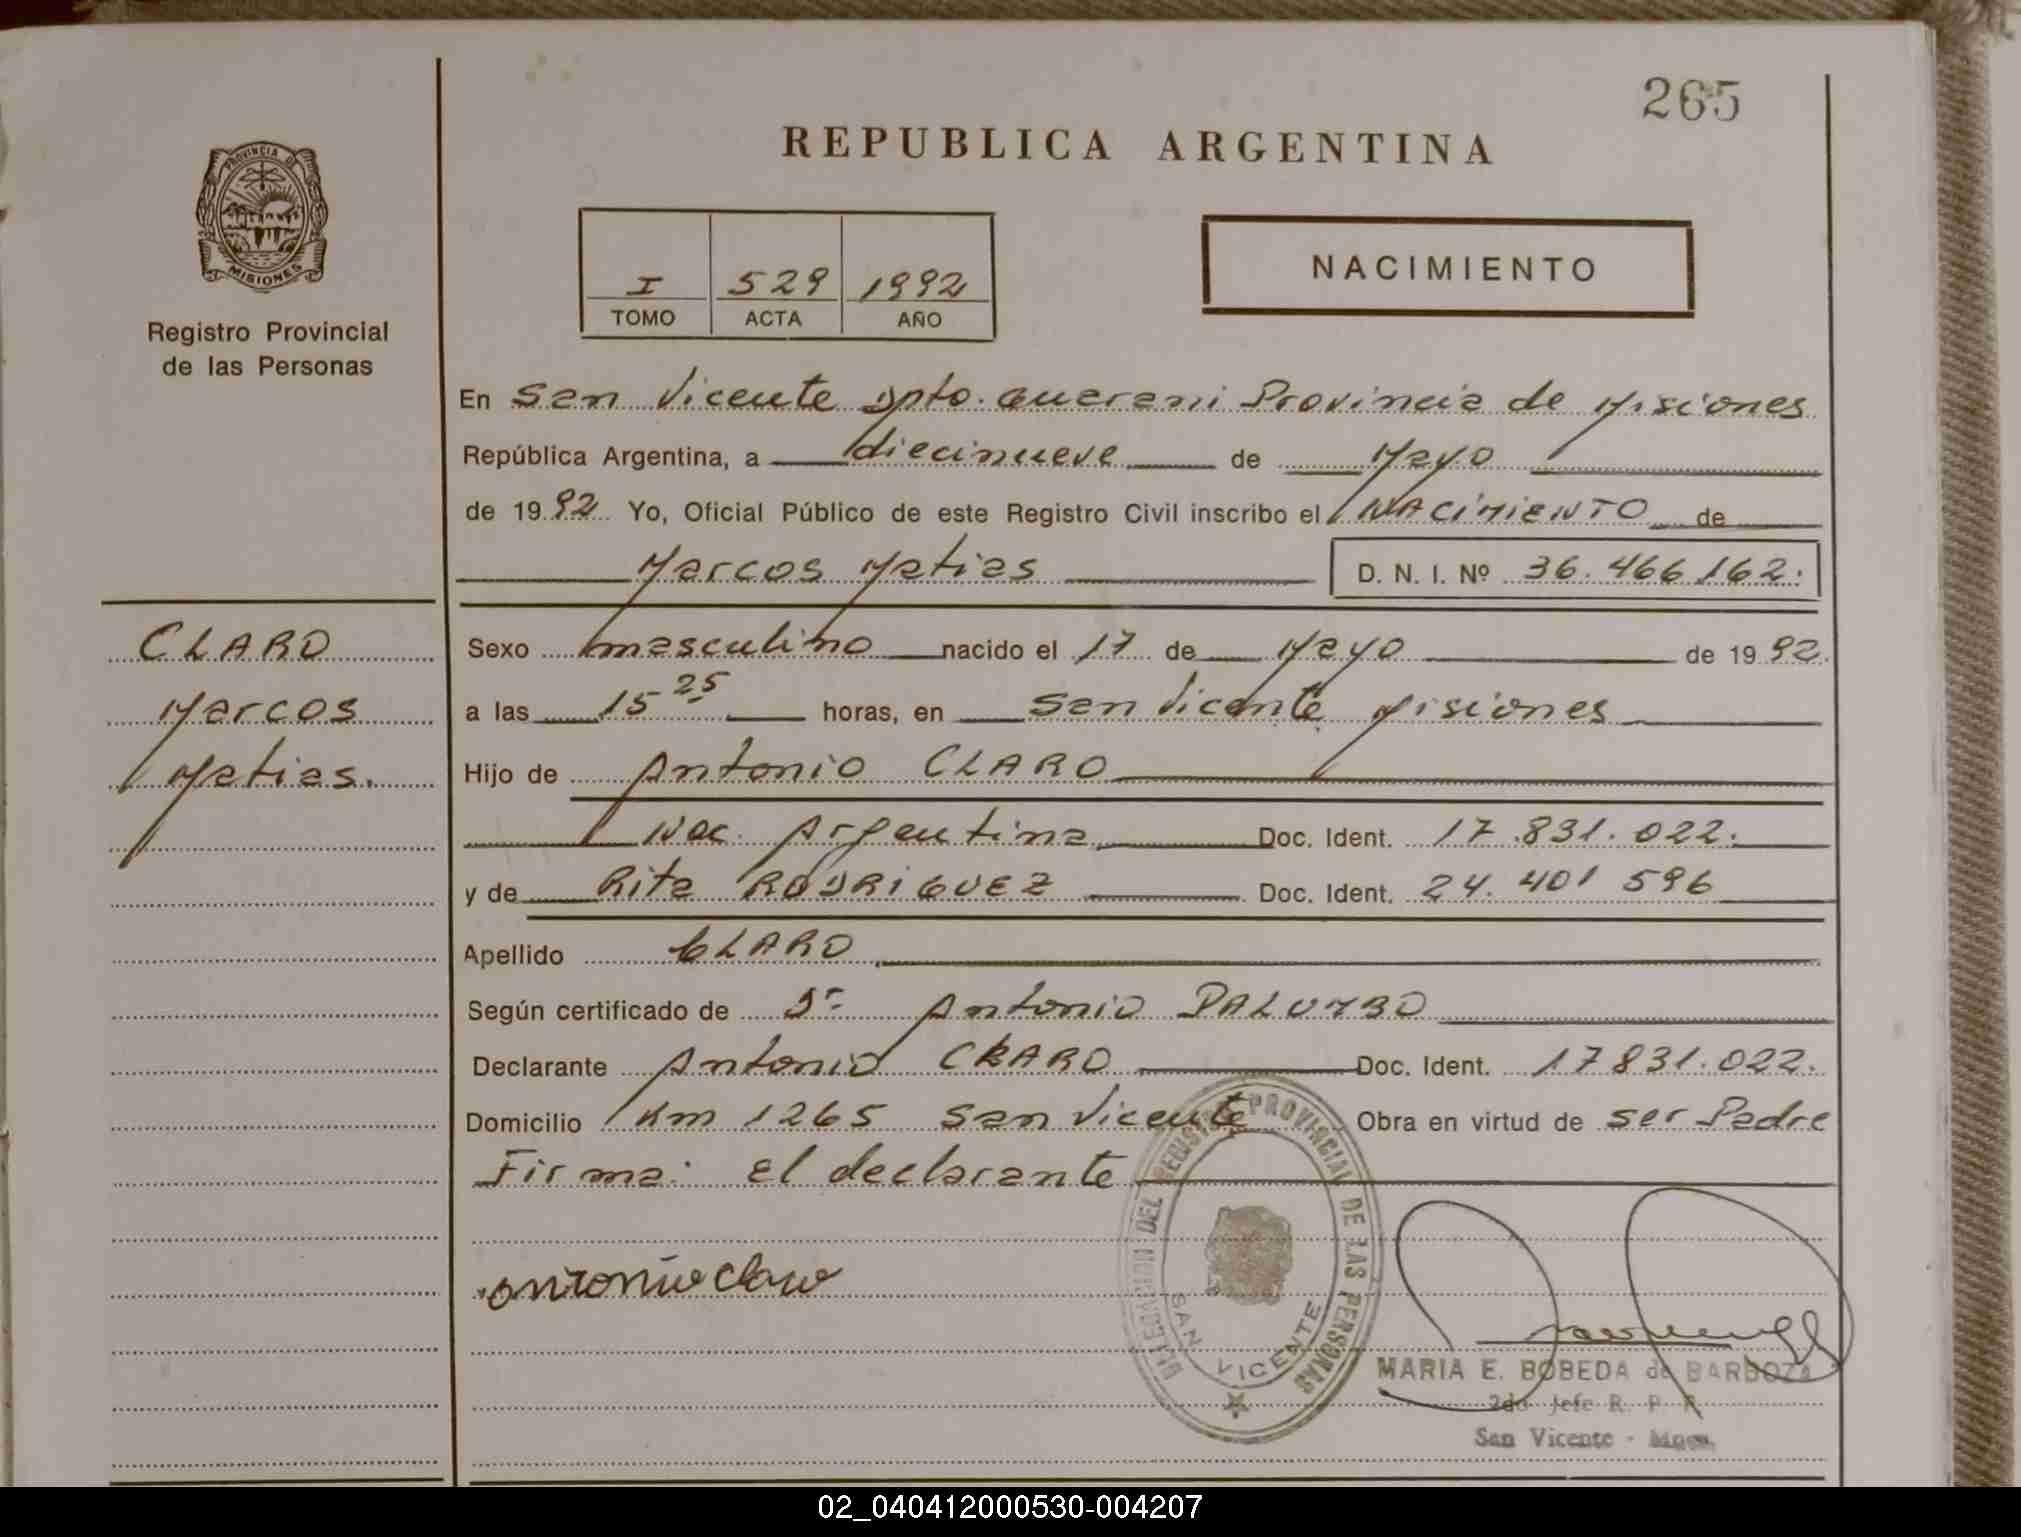 265
REPUBLICA ARGENTINA
PROVINCIA DE
MISIONES
Registro Provincial
de las Personas
I 529 1992
TOMO ACTA AÑO
NACIMIENTO
En San Vicente Dpto. Guarani Provincia de Misiones
República Argentina, a diecinueve de Mayo
de 1992 Yo, Oficial Público de este Registro Civil inscribo el NACIMIENTO de
Marcos Matias D. N. I. Nº 36.466.162.
CLARO
Marcos
Matias.
Sexo masculino nacido el 17 de Mayo de 1992.
a las 15 25 horas, en San Vicente Misiones
Hijo de Antonio CLARO
Nac. Argentina Doc. Ident. 17.831.022.
y de Rita RODRIGUEZ Doc. Ident. 24.401 596
Apellido CLARO
Según certificado de Dr Antonio PALUMBO
Declarante Antonio CLARO Doc. Ident. 17831.022.
Domicilio Km 1265 San Vicente Obra en virtud de ser Padre
Firma: El declarante
antonio claro
DELEGACION DEL REGISTRO PROVINCIAL DE LAS PERSONAS
SAN VICENTE
MARIA E. BOBEDA de BARBOZA
2do Jefe R. P. P.
San Vicente - Mnes.
02_040412000530-004207